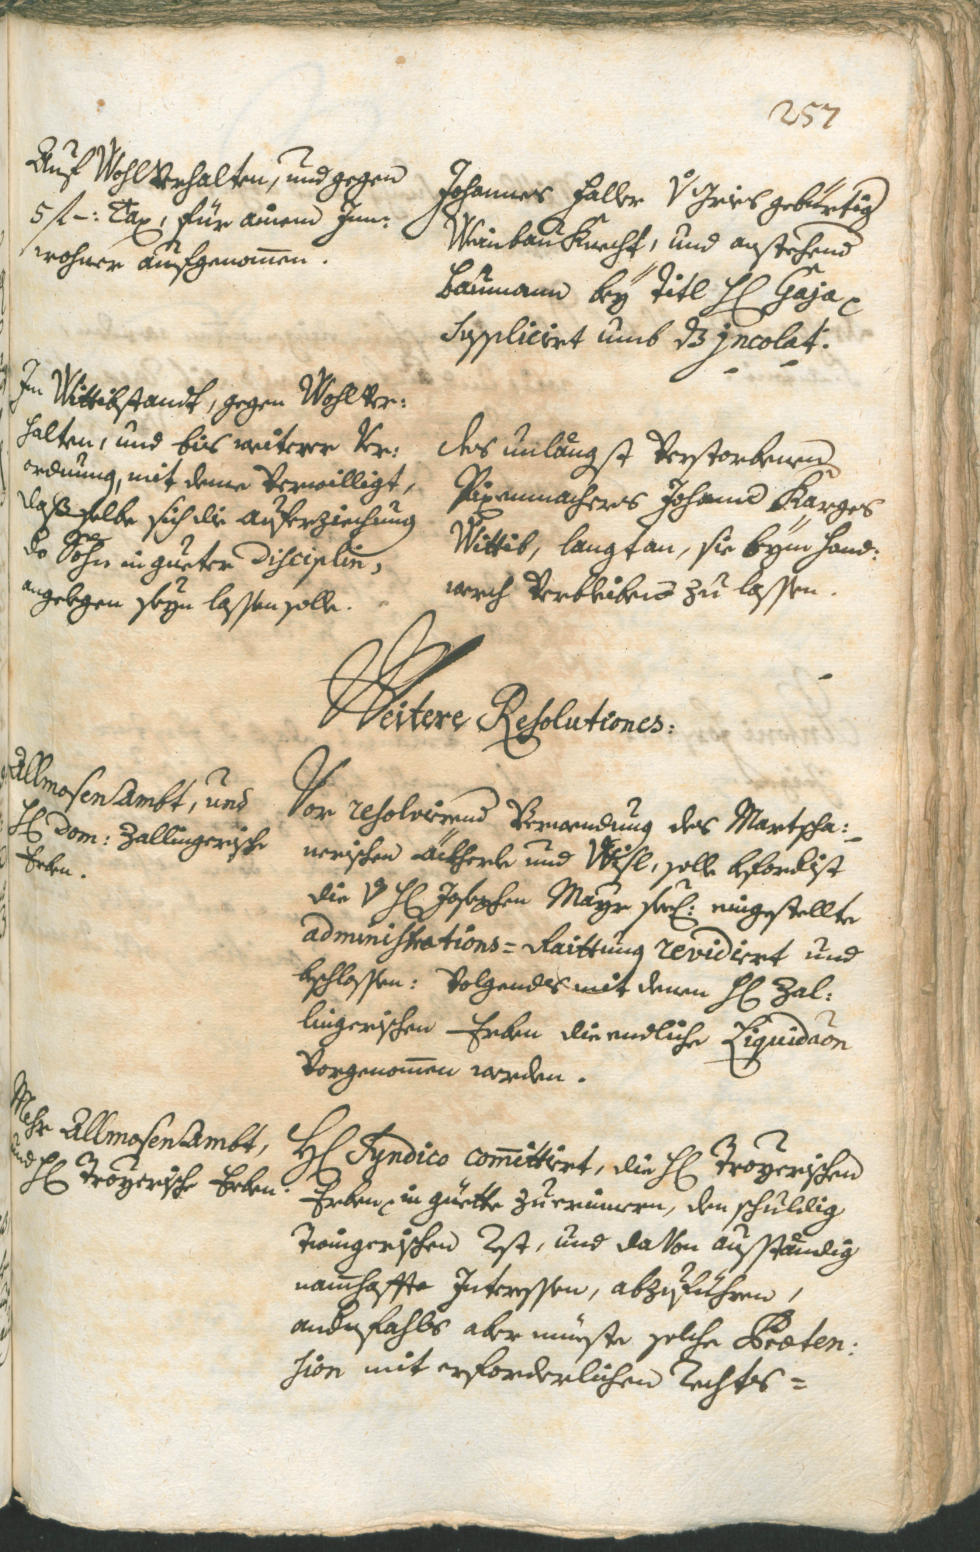 257
Auf Wohlverhalten, und gegen
5 f –: Tax, für ainem Inn:
wohner aufgenom̅en.
Johannes Haller v Gries gebürtig
Weinbau Knecht, und anstehend
Baumann bey Titl H Gaja
Supplicirt umb dz Incolat.
Im Wittibstandt, gegen Wohlver:
halten, und bis weiterer Ver:
ordnung, mit deme verwilligt,
daß selbe sich die aufferziechung
des Sohn in gueter Disciplin,
angelegen seyn lassen solle.
des unlängst verstorbenen
Pixenmachers Johann Karges
Wittib, langt an, sie beym Hand:
werch verbleiben zu lassen.
Weitere Resolutiones:
Allmosen Ambt, und
H Dom: Zallingerische
Erben.
Vor resolvirend Verwendung des Martscha:
nerischen äckherle und Wisl, solle befordist
die v H Josephen Mayr seel: eingestellte
administrations= Raittung revidiert und
beschlossen: Volgends mit denen H Zal:
lingerischen Erben die endliche Liquidaon
vorgenom̅en werden.
Mehr Allmosen Ambt,
und H Troyerische Erben.
H Syndico com̅ittirt, die H Troyerischen
Erben in güette zuerinnern, den schuldig
Twingerischen Rest, und davon ausständig
namhaffte Interessen, abzuführen,
andesfahls aber müeste solche Præten:
sion mit erforderlichen Rechts=